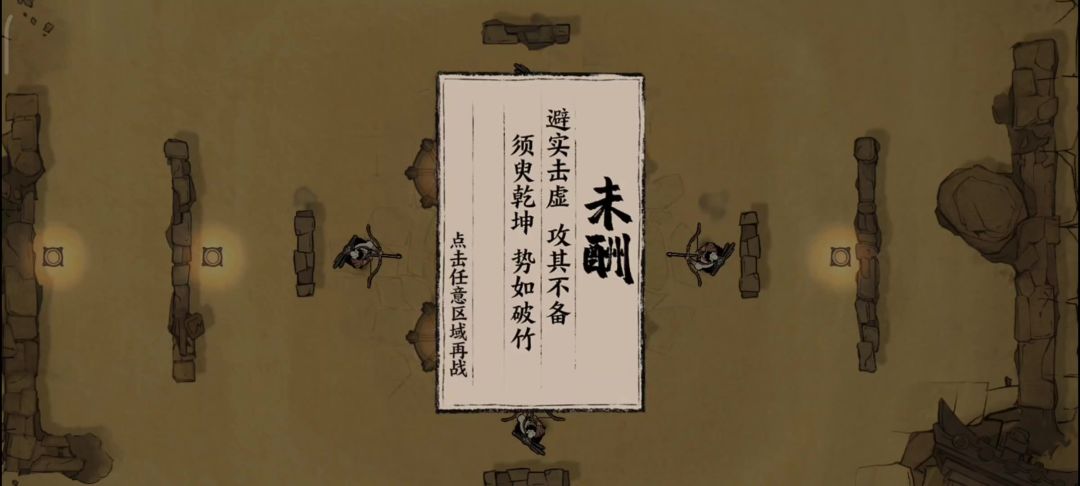 未酬
避实击虚 攻其不备
须臾乾坤 势如破竹
点击任意区域再战